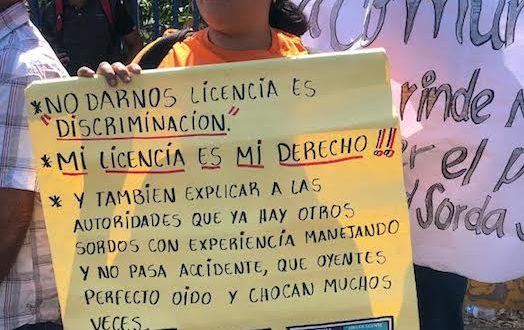 *NO DARNOS LICENCIA ES
"DISCRIMINACION."
*MI LICENCIA ES MI DERECHO!!
* Y TAMBIEN EXPLICAR A LAS
AUTORIDADES QUE YA HAY OTROS
SORDOS CON EXPERIENCIA MANEJANDO
Y NO PASA ACCIDENTE, QUE OYENTES
PERFECTO OIDO Y CHOCAN MUCHOS
VECES.
a comun
rinde
er el p
Sorda